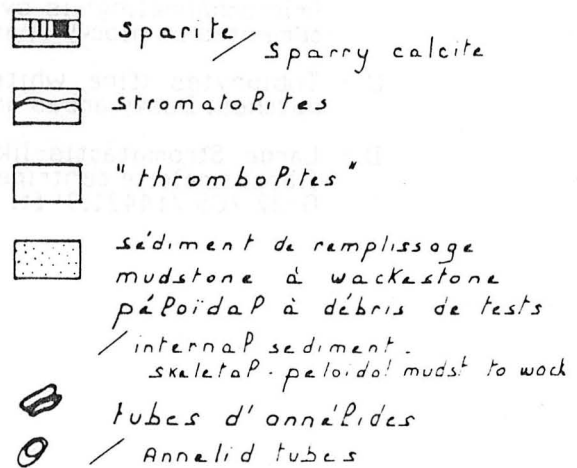 sparite
/ sparry calcite
stromatolites
"thrombolites"
sédiment de remplissage
mudstone à wackestone
péloïdal à débris de tests
/ internal sediment.
skeletal - peloidal mudst to wack
tubes d'annélides
/ Annelid tubes